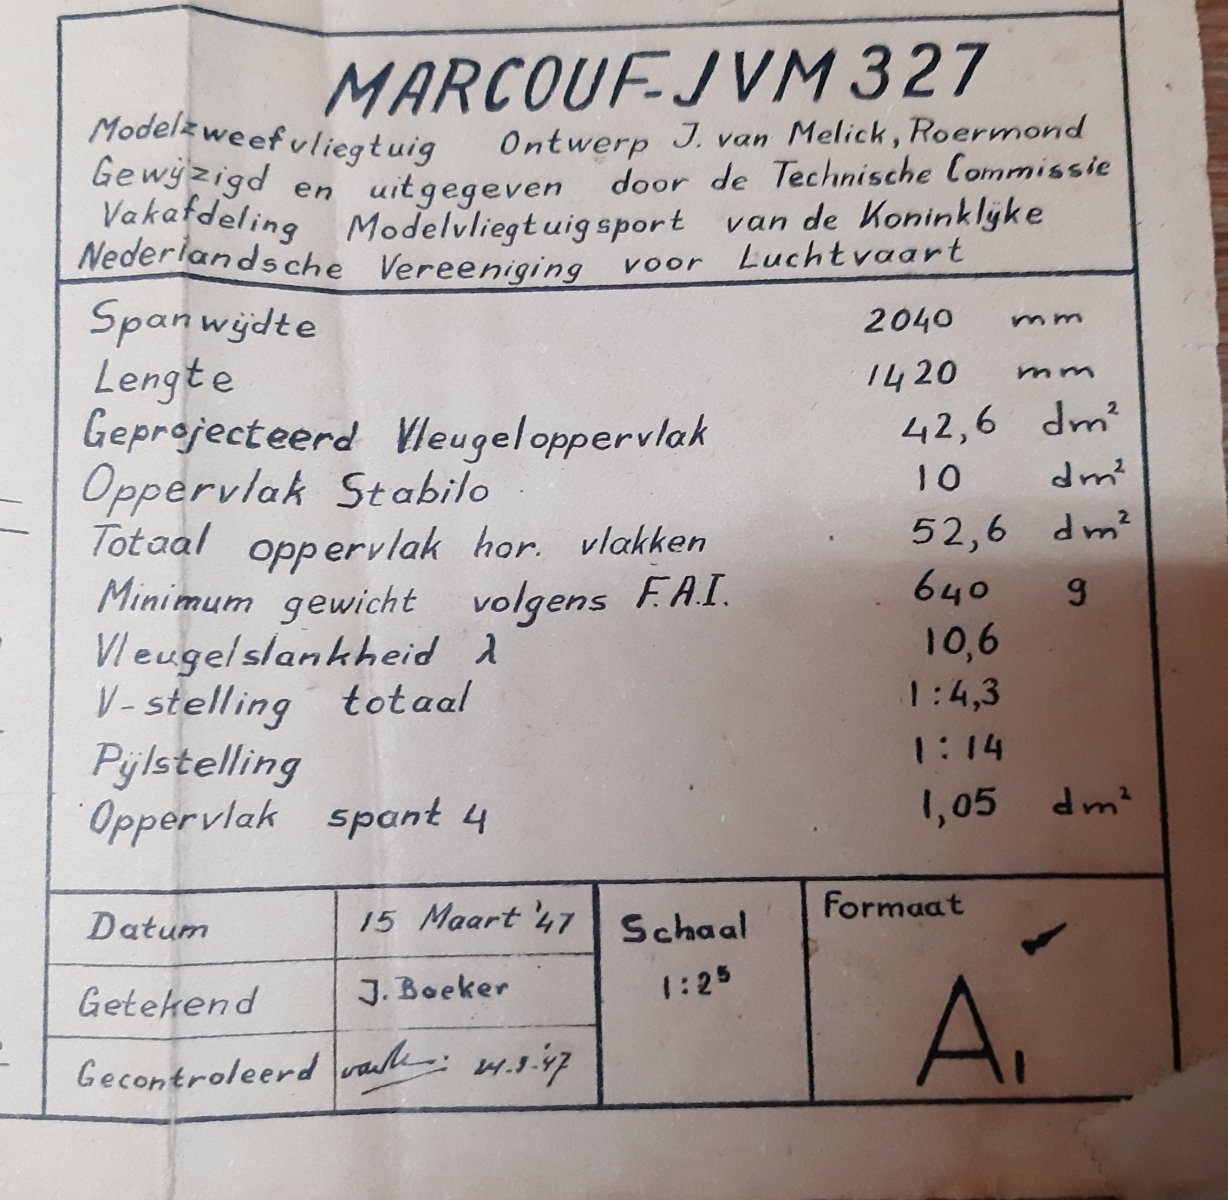 MARCOUF-JVM 327
Modelzweefvliegtuig Ontwerp J. van Melick, Roermond
Gewijzigd en uitgegeven door de Technische Commissie
Vakafdeling Modelvliegtuigsport van de Koninklijke
Nederlandsche Vereeniging voor Luchtvaart
Spanwijdte 2040 mm
Lengte 1420 mm
Geprojecteerd Vleugeloppervlak 42,6 dm²
Oppervlak Stabilo 10 dm²
Totaal oppervlak hor. vlakken 52,6 dm²
Minimum gewicht volgens F.A.I. 640 g
Vleugelslankheid λ 10,6
V-stelling totaal 1:4,3
Pijlstelling 1:14
Oppervlak spant 4 1,05 dm²
Datum 15 Maart '47
Getekend J. Boeker
Gecontroleerd
Schaal
1:2⁵
Formaat
A1